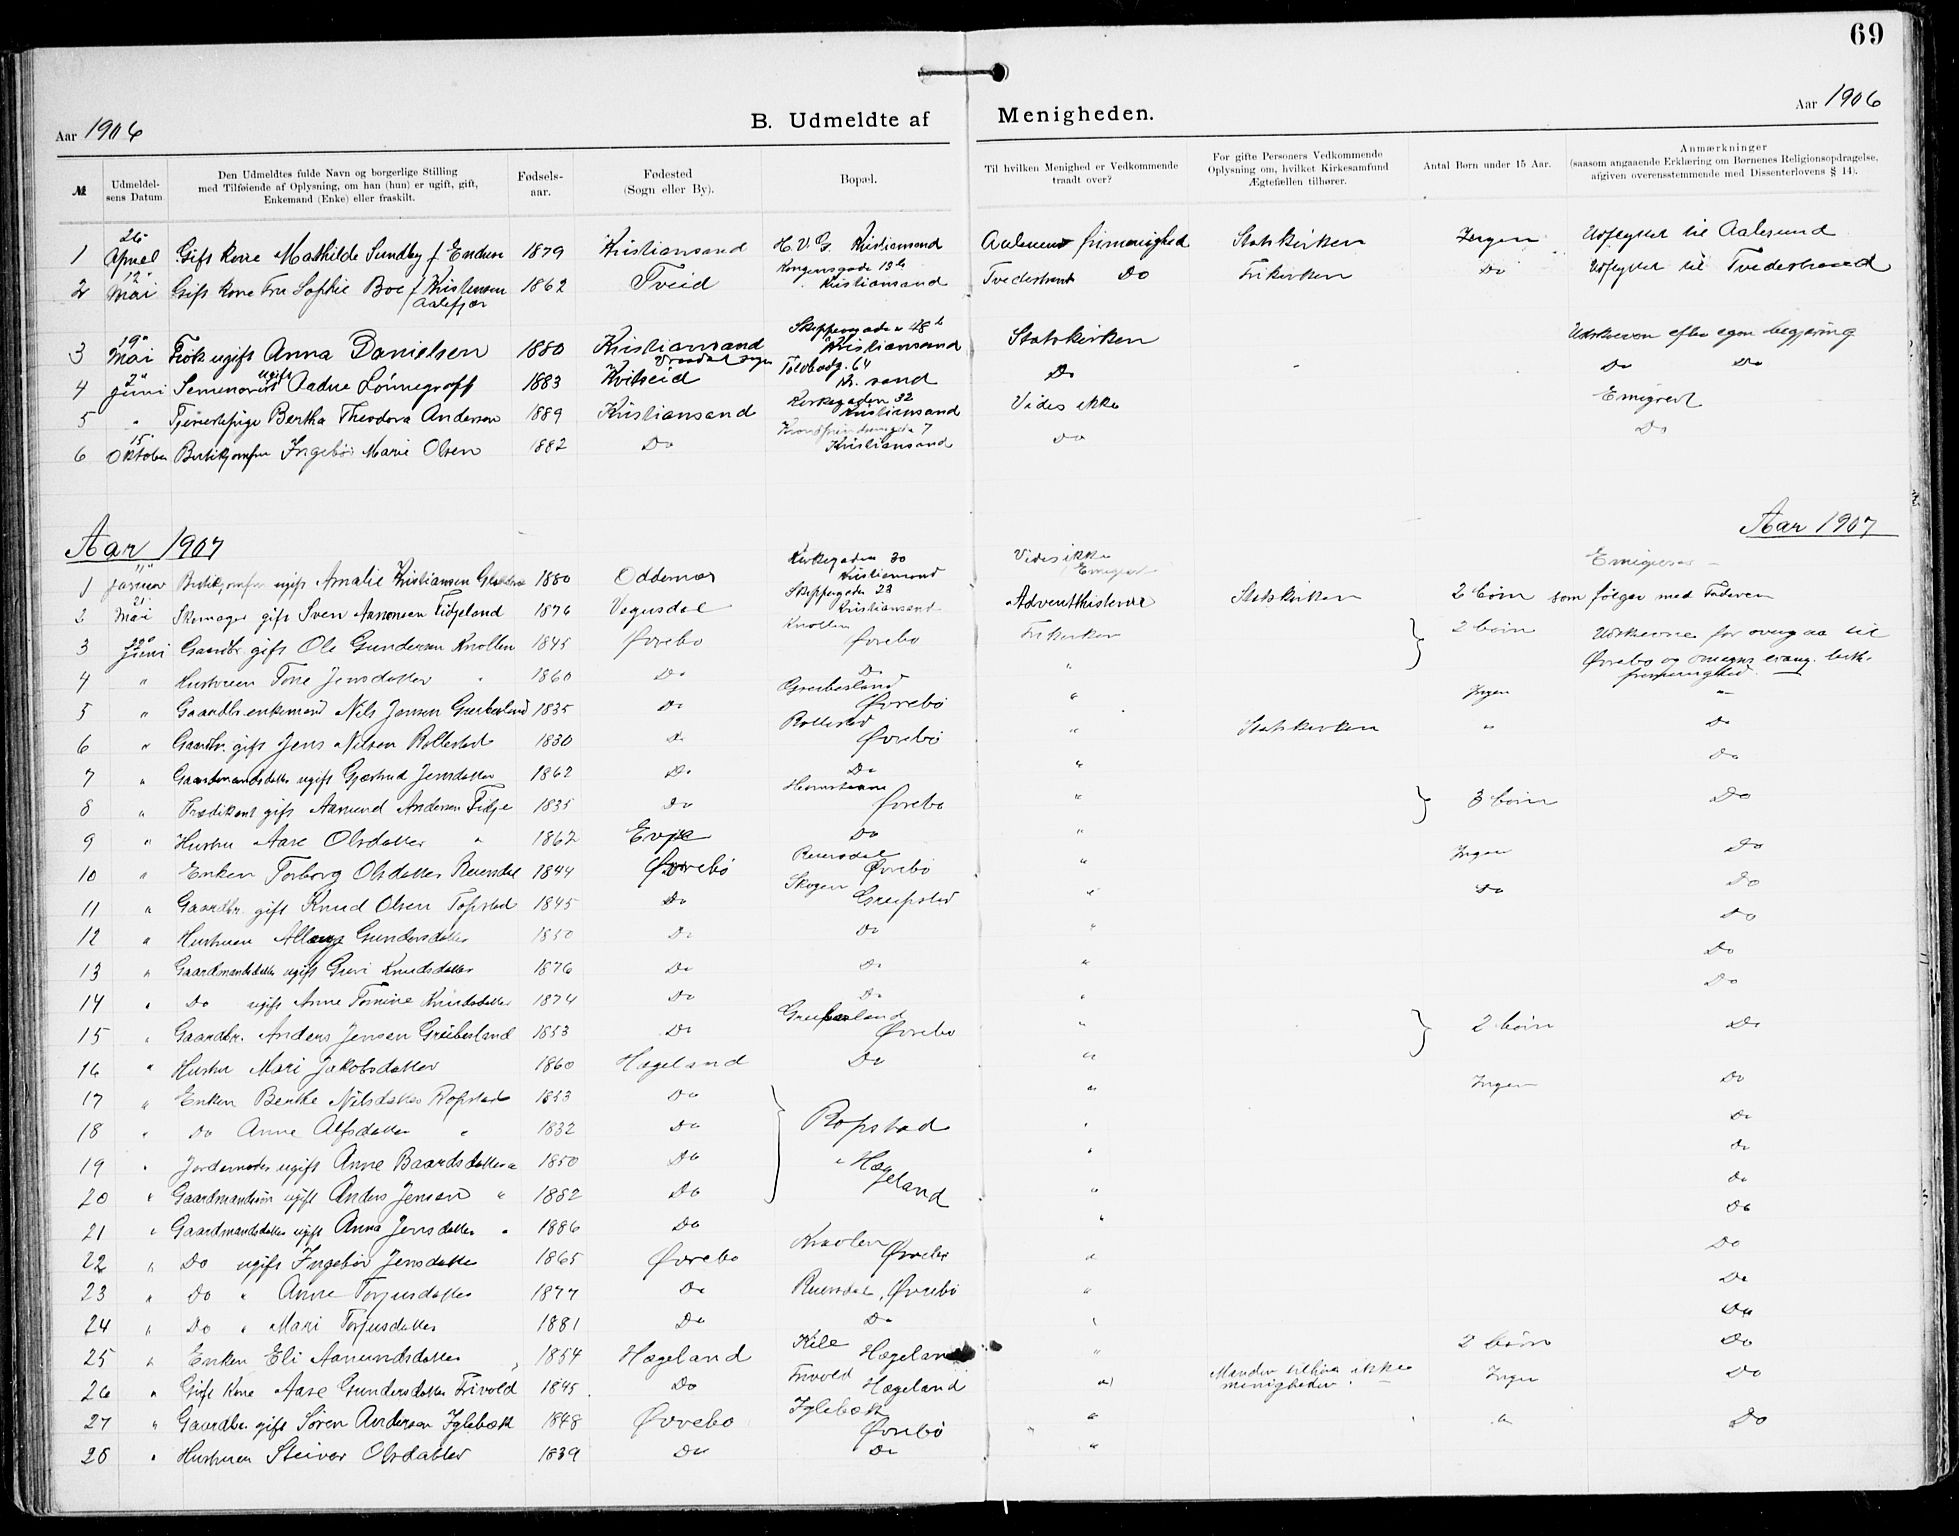 69
Aar 1906 B. Udmeldte af Menigheden. Aar 1906
№ Udmeldelsens Datum Den Udmeldtes fulde Navn og borgerlige Stilling med Tilføiende af Oplysning, om han (hun) er ugift, gift, Enkemand (Enke) eller fraskilt. Fødselsaar. Fødested (Sogn eller By). Bopæl. Til hvilken Menighed er Vedkommende traadt over? For gifte Personers Vedkommende Oplysning om, hvilket Kirkesamfund Ægtefællen tilhører. Antal Børn under 15 Aar. Anmærkninger (saasom angaaende Erklæring om Børnenes Religionsopdragelse, afgiven overensstemmende med Dissenterlovens § 14).
1 26 April Gift Kone Mathilde Sundby f. 1879 Kristiansand H.V.G. Kristiansand Aalesund frimenighed Statskirken Ingen Udflyttet til Aalesund
2 12 Mai Gift Kone Fru Sophie Boe f. Kristensen 1862 Tveid Kongensgade Kristiansand Tvedestrand Do Frikirken Do Udflyttet til Tvedestrand
3 19 Mai Frøk ugift Anna Danielsen 1880 Kristiansand Skippergaden 48 Kristiansand Statskirken Udskreven efter egen begjæring
4 Juni Seminarist ugift Aadne Lønnegraff 1883 Vraadal sogn Kviteseid Toldbodg. 64 Kr. sand Do Do Do
5 " Tjenestepige Bertha Theodora Andersen 1889 Kristiansand Kirkegaden 32 Kristiansand Vides ikke Emigrert
6 15 Oktober Butikjomfru Ingebør Marie Olsen 1882 Do 7 Kristiansand Do Do
Aar 1907 Aar 1907
1 Januar Butikjomfru ugift Amalie Kristiansen 1880 Oddernes Kirkegaden 30 Kristiansand Vides ikke Emigrert
2 21 Mai Skomager gift Sven Aanonsen Fidjeland 1876 Vegusdal Skippergaden 23 Kristiansand Adventisterne Statskirken 2 børn som følger med Faderen
3 Juni Gaardbr. gift Ole Gundersen Knollen 1845 Øvrebo Knollen Øvrebo Frikirken } 2 børn Udskrevne for overgaa til
4 " Hustruen Tone Jensdatter " 1860 Do Do " Øvrebo og omegns evang. luth. frimenighed.
5 " Gaardbr. enkemand Nils Jensen Greibesland 1835 Do Greibesland Øvrebö " Ingen "
6 " Gaardbr. gift Jens Nilsen Rollestad 1830 Do Rollestad Øvrebö " Statskirken " Do
7 " Gaardmandsdatter ugift Gjertrud Jensdatter 1862 Do Do " Do
8 " Prædikant gift Aanund Andersen Fidje 1835 Do Øvrebo " } 3 børn Do
9 " Hustru Aase Olsdatter " 1862 Evje Do "
10 " Enken Torborg Olsdatter Reiersdal 1844 Øvrebö Reiersdal Øvrebö " Ingen Do
11 " Gaardbr. gift Knud Olsen Topstad 1845 Do Skogen Greipstad " Do Do
12 " Hustruen Gundersdatter 1850 Do Do " Do
13 " Gaardmandsdatter ugift Guri Knudsdatter 1876 Do Do " Do
14 " Do ugift Anne Tomine Knudsdatter 1874 Do Do " Do
15 " Gaardbr. Anders Jensen Greibesland 1853 Do Greibesland Øvrebo " } 2 børn Do
16 " Hustru Mari Jakobsdatter 1860 Hægeland Do "
17 " Enken Berthe Nilsdatter Ropstad 1853 Do } Ropstad " Ingen Do
18 " Do Anne Alfsdatter " 1832 Do " Do
19 " Jordemoder ugift Anne Baardsdatter " 1850 Do " Hægeland " Do
20 " Gaardmandssøn ugift Anders Jensen " 1882 Do " Do
21 " Gaardmandsdatter ugift Anna Jensdatter " 1886 Do " Do
22 " Do ugift Ingebør Jensdatter 1865 Øvrebo Øvrebo " Do
23 " Do " Anne Torjusdatter 1877 Do Reiersdal, Øvrebö " Do
24 " Do " Mari Torjusdatter 1881 Do Do " Do
25 " Enken Eli Aanundsdatter 1854 Hægeland Kile Hægeland " 2 børn Do
26 " Gift Kone Aase Gundersdatter Frivold 1845 Do Frivold Hægeland " Manden tilhør ikke menigheden. Ingen Do
27 " Gaardbr. gift Søren Andersen Iglebæk 1848 Øvrebo Iglebæk Øvrebö " " Do
28 " Hustruen Steivor Olsdatter 1839 Do Do "